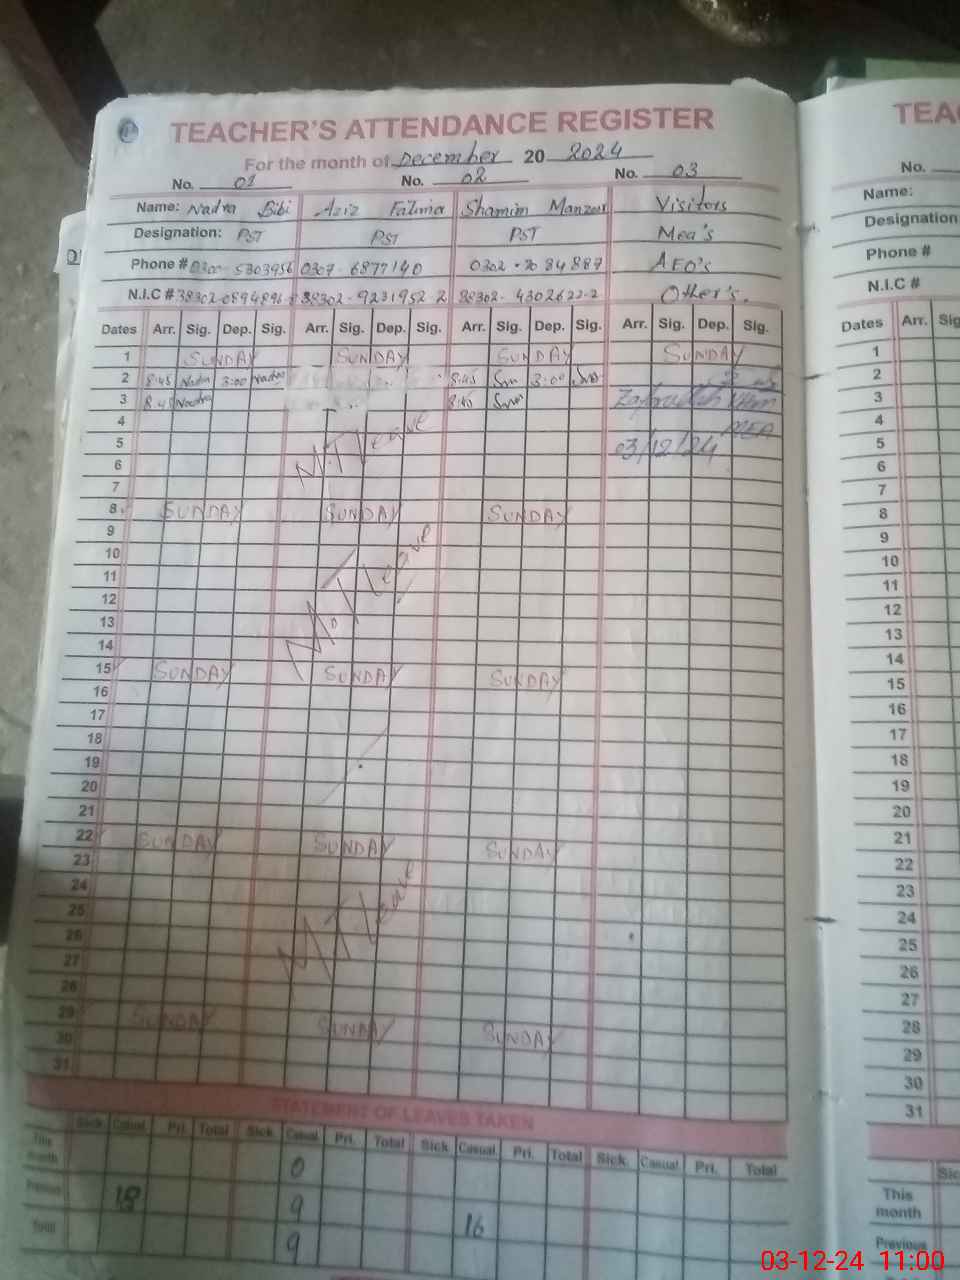 TEACHER'S ATTENDANCE REGISTER
For the month of December 20 2024
No. 01 No. 02 No. 03
Name: Nadra Bibi Aziz Fatima Shamim Manzoor Visitors
Designation: PST PST PST Mea's
Phone # 0300-5303956 0307-6877140 0302-7084887 AEO's
N.I.C # 38302-9231952-2 38302-4302622-2 Other's.
Dates Arr. Sig. Dep. Sig. Arr. Sig. Dep. Sig. Arr. Sig. Dep. Sig. Arr. Sig. Dep. Sig.
1 SUNDAY SUNDAY SUNDAY SUNDAY
2 8:45 Nadra 3:00 Nadra 8:45 3:00
3 8:45 Nadra 8:45
4 M.T leave MEA
5 03/12/24
6
7
8 SUNDAY SUNDAY SUNDAY
9
10
11 M.T leave
12
13
14
15 SUNDAY SUNDAY SUNDAY
16
17
18
19
20
21
22 SUNDAY SUNDAY SUNDAY
23
24
25 M.T. leave
26
27
28
29 SUNDAY SUNDAY SUNDAY
30
31
STATEMENT OF LEAVES TAKEN
Sick Casual Pri. Total Sick Casual Pri. Total Sick Casual Pri. Total Sick Casual Pri. Total
This month 0
Previous 18 9 16
Total 9
TEAC
No.
Name:
Designation
Phone #
N.I.C #
Dates Arr. Sig
1
2
3
4
5
6
7
8
9
10
11
12
13
14
15
16
17
18
19
20
21
22
23
24
25
26
27
28
29
30
31
Sic
This month
Previous
03-12-24 11:00